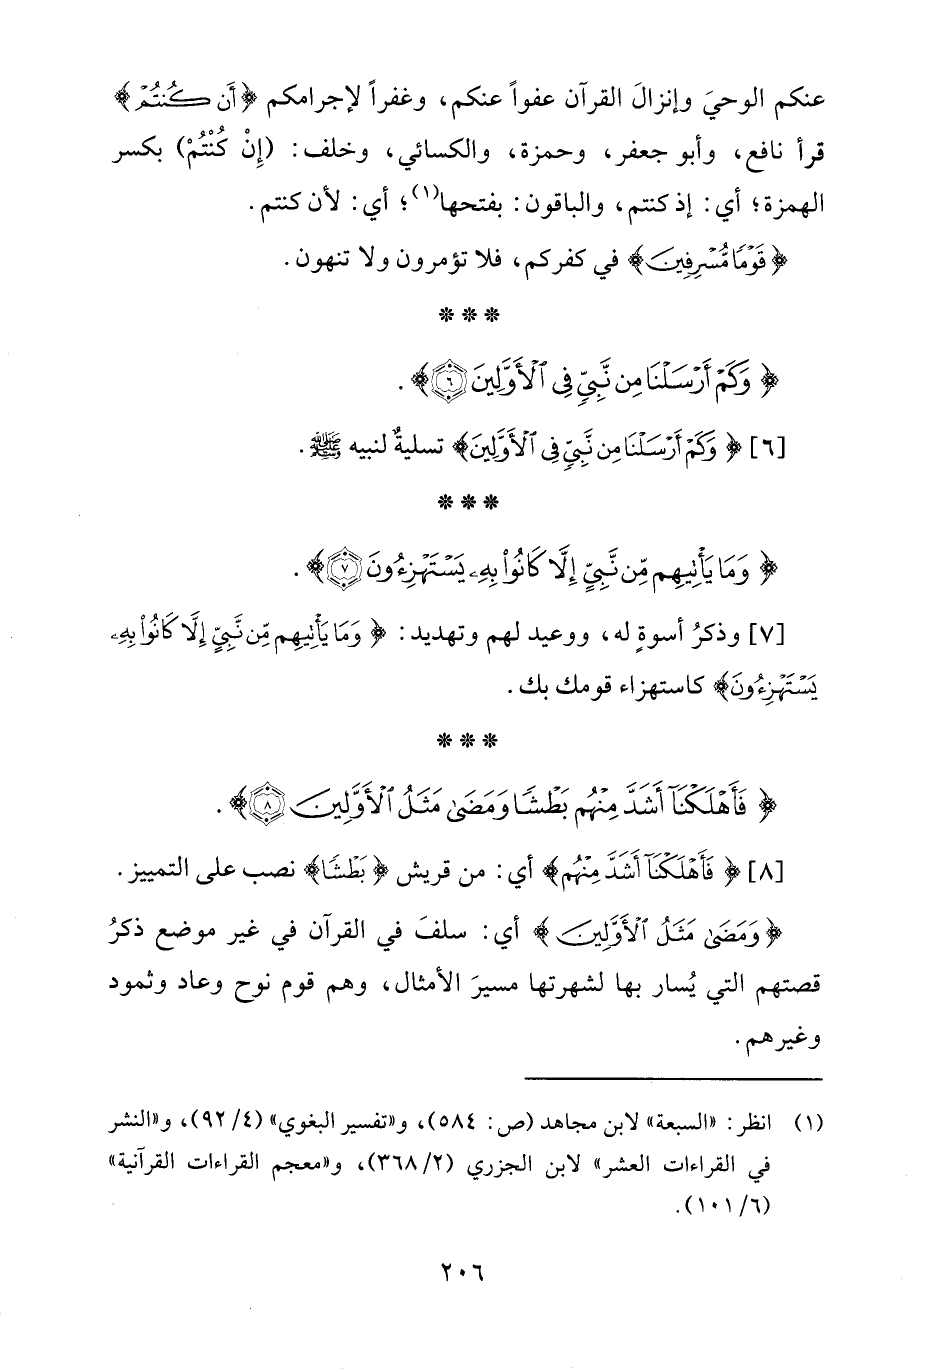 عنكم الوحيَ وإنزالَ القرآن عفواً عنكم، وغفراً لإجرامكم ﴿أَن كُنتُمْ﴾
قرأ نافع، وأبو جعفر، وحمزة، والكسائي، وخلف: (إِنْ كُنْتُمْ) بكسر
الهمزة؛ أي: إذ كنتم، والباقون: بفتحها(١)؛ أي: لأن كنتم.
﴿قَوْمًا مُّسْرِفِينَ﴾ في كفركم، فلا تؤمرون ولا تنهون.
* * *
﴿وَكَمْ أَرْسَلْنَا مِن نَّبِيٍّ فِى ٱلْأَوَّلِينَ ٦﴾.
[٦] ﴿وَكَمْ أَرْسَلْنَا مِن نَّبِيٍّ فِى ٱلْأَوَّلِينَ﴾ تسليةٌ لنبيه ﷺ.
* * *
﴿وَمَا يَأْتِيهِم مِّن نَّبِيٍّ إِلَّا كَانُوا۟ بِهِۦ يَسْتَهْزِءُونَ ٧﴾.
[٧] وذكرُ أسوةٍ له، ووعيد لهم وتهديد: ﴿وَمَا يَأْتِيهِم مِّن نَّبِيٍّ إِلَّا كَانُوا۟ بِهِۦ
يَسْتَهْزِءُونَ﴾ كاستهزاء قومك بك.
* * *
﴿فَأَهْلَكْنَآ أَشَدَّ مِنْهُم بَطْشًا وَمَضَىٰ مَثَلُ ٱلْأَوَّلِينَ ٨﴾.
[٨] ﴿فَأَهْلَكْنَآ أَشَدَّ مِنْهُم﴾ أي: من قريش ﴿بَطْشًا﴾ نصب على التمييز.
﴿وَمَضَىٰ مَثَلُ ٱلْأَوَّلِينَ﴾ أي: سلفَ في القرآن في غير موضع ذكرُ
قصتهم التي يُسار بها لشهرتها مسيرَ الأمثال، وهم قوم نوح وعاد وثمود
وغيرهم.
(١) انظر: «السبعة» لابن مجاهد (ص: ٥٨٤)، و«تفسير البغوي» (٤/ ٩٢)، و«النشر
في القراءات العشر» لابن الجزري (٢/ ٣٦٨)، و«معجم القراءات القرآنية»
(٦/ ١٠١).
٢٠٦